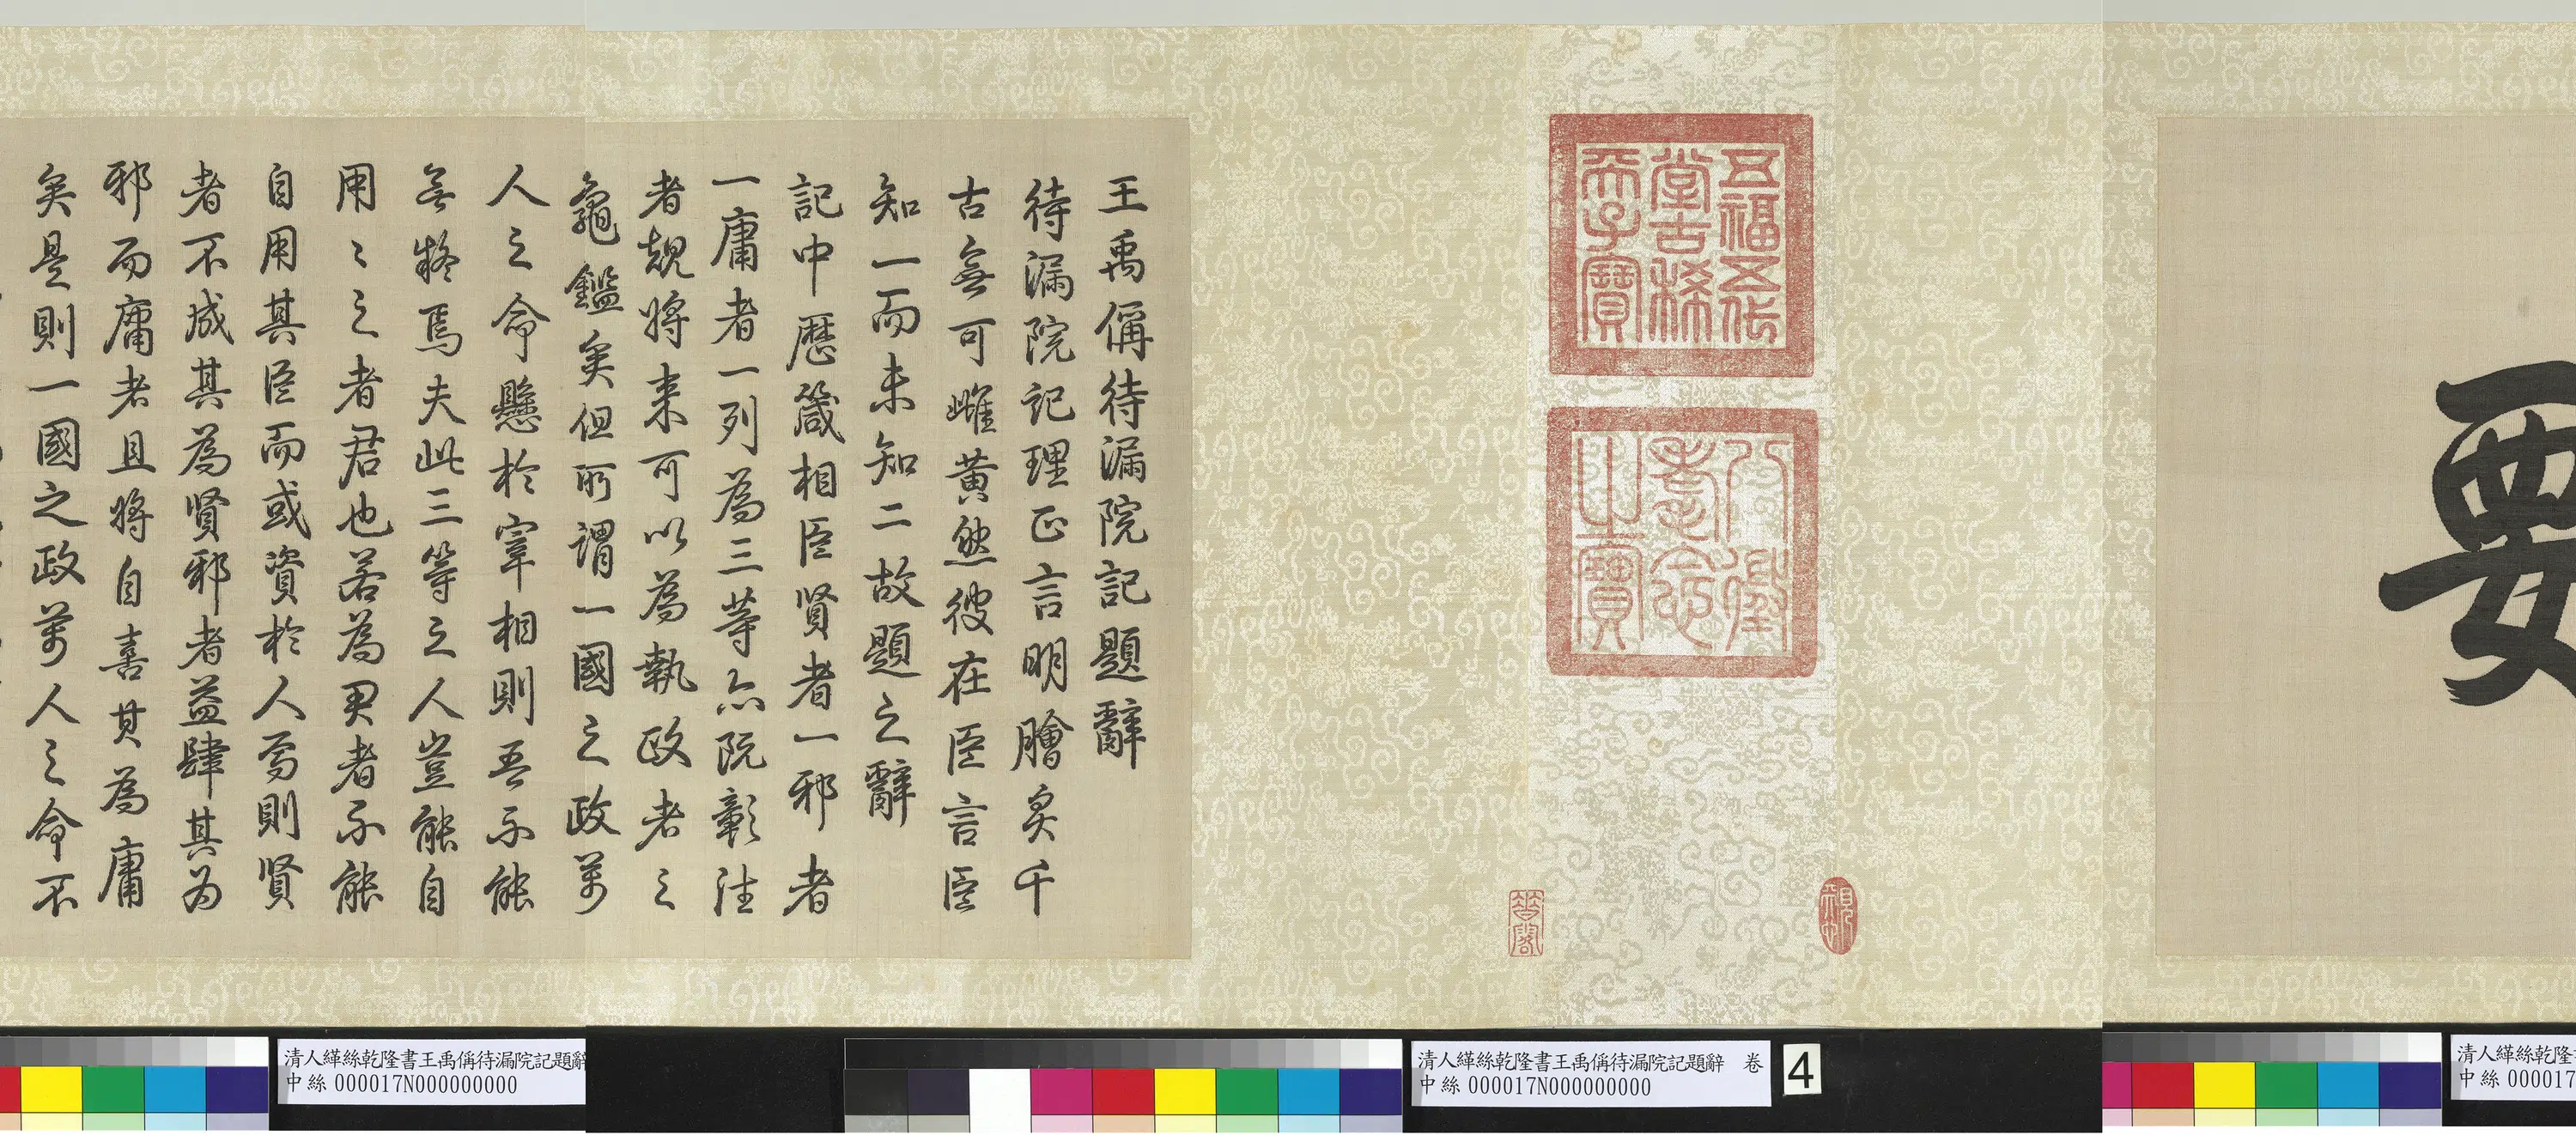 要
五福五代
堂古稀
天子寶
八徵
耄念
之寶
王禹偁待漏院記題辭
待漏院記理正言明膾炙千
古無可雌黄然彼在臣言臣
知一而未知二故題之辭
記中歷箴相臣賢者一邪者
一庸者一列為三等亦既彰往
者覘將来可以為執政者之
龜鑑矣但所謂一國之政萬
人之命懸於宰相則吾不能
無疑焉夫此三等之人豈能自
用〻之者君也若為君者不能
自用其臣而或資於人焉則賢
者不成其為賢邪者益肆其为
邪而庸者且將自喜其為庸
矣是則一國之政萬人之命不
清人緙絲乾隆書王禹偁待漏院記題辭
中絲 000017N000000000
清人緙絲乾隆書王禹偁待漏院記題辭 卷
中絲 000017N000000000
4
清人緙絲乾隆書
中絲 000017